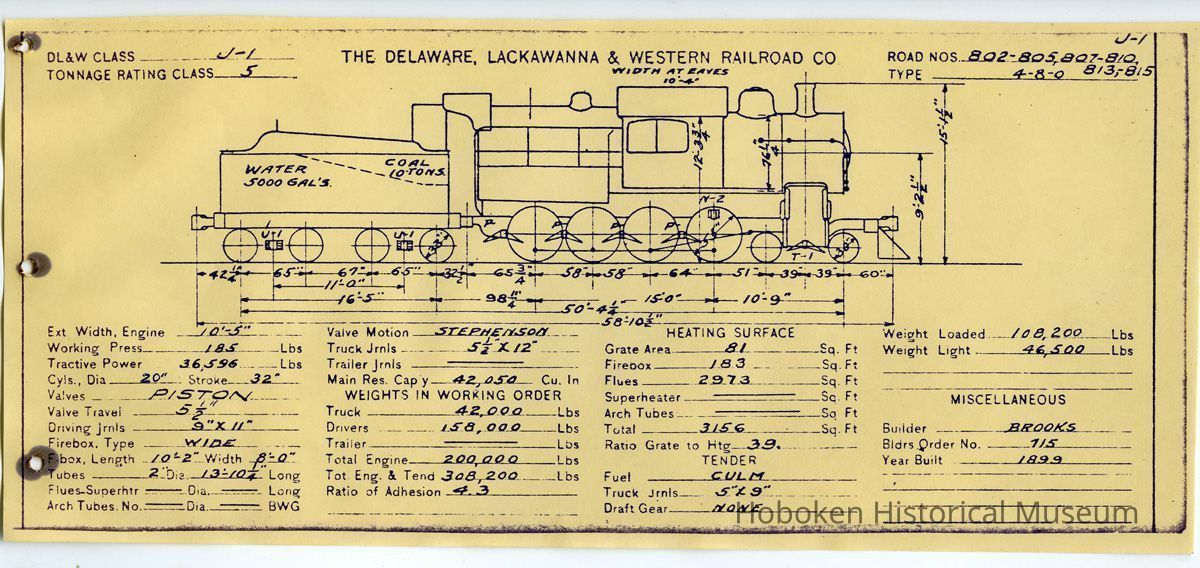 J-1
DL&W CLASS J-1
TONNAGE RATING CLASS 5
THE DELAWARE, LACKAWANNA & WESTERN RAILROAD CO
ROAD NOS. 802-805, 807-810,
813,-815
TYPE 4-8-0
WIDTH AT EAVES
10'-4"
WATER
5000 GAL'S.
COAL
10-TONS.
12'-3 3/4"
76 1/4"
15'-1 1/2"
9'-2 1/2"
J-1
J-1
N-2
T-1
42 1/4" 65" 67" 65" 32 1/2" 65 3/4" 58" 58" 64" 51" 39" 39" 60"
11'-0"
16'-5" 98 1/4" 15'0" 10'-9"
50'-4 1/4"
58'-10 1/2"
Ext Width, Engine 10'-5"
Working Press. 185 Lbs
Tractive Power 36,596 Lbs
Cyls., Dia 20" Stroke 32"
Valves PISTON
Valve Travel 5 1/2"
Driving Jrnls 9" X 11"
Firebox, Type WIDE
F'box, Length 10'-2" Width 8'-0"
Tubes 2" Dia. 13'-10 1/4" Long
Flues-Superhtr Dia. Long
Arch Tubes. No. Dia. BWG
Valve Motion STEPHENSON
Truck Jrnls 5 1/2" X 12"
Trailer Jrnls
Main Res. Cap'y 42,050 Cu. In
WEIGHTS IN WORKING ORDER
Truck 42,000 Lbs
Drivers 158,000 Lbs
Trailer Lbs
Total Engine 200,000 Lbs
Tot. Eng. & Tend 308,200 Lbs
Ratio of Adhesion 4.3
HEATING SURFACE
Grate Area 81 Sq. Ft
Firebox 183 Sq. Ft
Flues 2973 Sq. Ft
Superheater Sq. Ft
Arch Tubes Sq. Ft
Total 3156 Sq. Ft
Ratio Grate to Htg 39.
TENDER
Fuel CULM
Truck Jrnls 5" X 9"
Draft Gear NONE
Weight Loaded 108,200 Lbs
Weight Light 46,500 Lbs
MISCELLANEOUS
Builder BROOKS
Bldrs Order No. 715
Year Built 1899
Hoboken Historical Museum